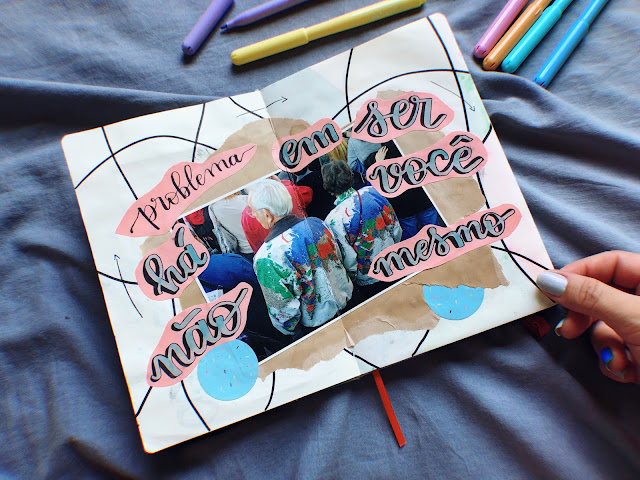 não
há
problema
em
ser
você
mesmo